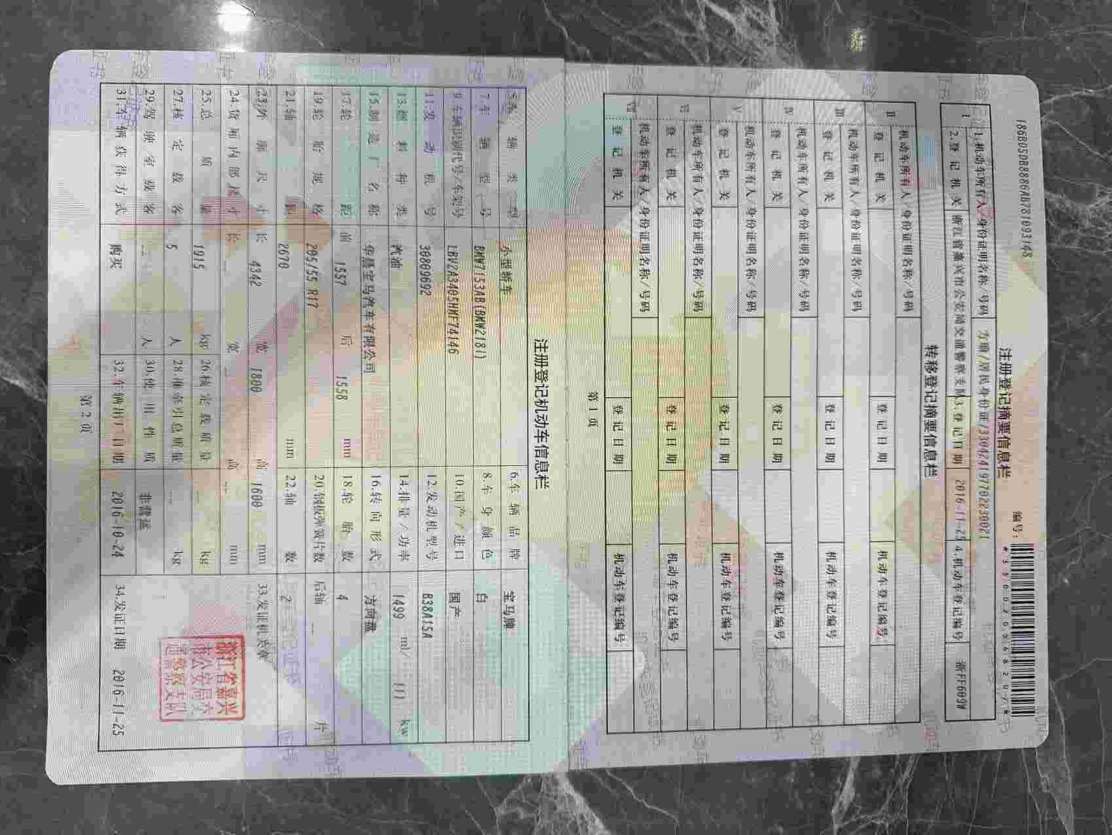 注册登记摘要信息栏
编号:
1.机动车所有人/身份证明名称/号码
2.登记机关 浙江省嘉兴市公安局交通警察支队 3.登记日期 4.机动车登记编号 浙FF609W
转移登记摘要信息栏
II 机动车所有人/身份证明名称/号码
登记机关 登记日期 机动车登记编号
III 机动车所有人/身份证明名称/号码
登记机关 登记日期 机动车登记编号
IV 机动车所有人/身份证明名称/号码
登记机关 登记日期 机动车登记编号
V 机动车所有人/身份证明名称/号码
登记机关 登记日期 机动车登记编号
VI 机动车所有人/身份证明名称/号码
登记机关 登记日期 机动车登记编号
VII 机动车所有人/身份证明名称/号码
登记机关 登记日期 机动车登记编号
第1页
注册登记机动车信息栏
5.车辆类型 小型轿车 6.车辆品牌 宝马牌
7.车辆型号 BMW7153AB(BMW218i) 8.车身颜色 白
9.车辆识别代号/车架号 LBV2A3405HMF74146 10.国产/进口 国产
11.发动机号 30809692 12.发动机型号 B38A15A
13.燃料种类 汽油 14.排量/功率 1499 ml/ kw
15.制造厂名称 华晨宝马汽车有限公司 16.转向形式 方向盘
17.轮距 前 1557 后 1558 mm 18.轮胎数 4
19.轮胎规格 205/55 R17 20.钢板弹簧片数 后轴 片
21.轴距 2670 mm 22.轴数 2
23.外廓尺寸 长 4342 宽 1800 高 1600 mm
24.货厢内部尺寸 长 宽 高 mm
25.总质量 1915 kg 26.核定载质量 kg
27.核定载客 5 人 28.准牵引总质量 kg
29.驾驶室载客 人 30.使用性质 非营运
31.车辆获得方式 购买 32.车辆出厂日期 2016-10-24
33.发证机关章
34.发证日期 2016-11-25
第2页